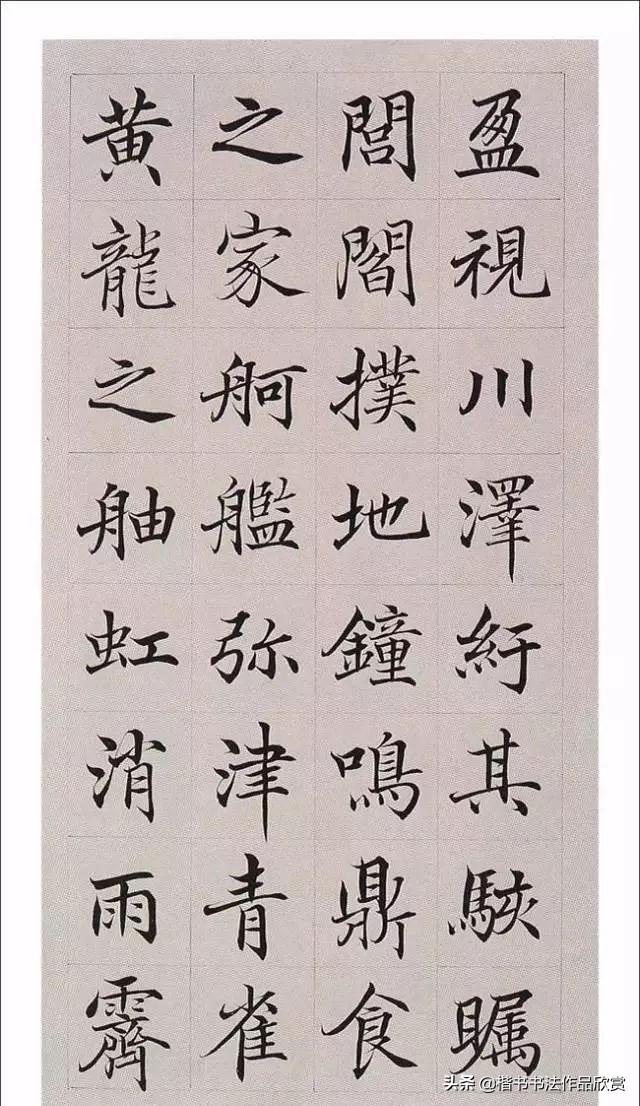 盈視川澤紆其駭矚
閭閻撲地鐘鳴鼎食
之家舸艦弥津青雀
黄龍之舳虹消雨霽
头条 @楷书书法作品欣赏